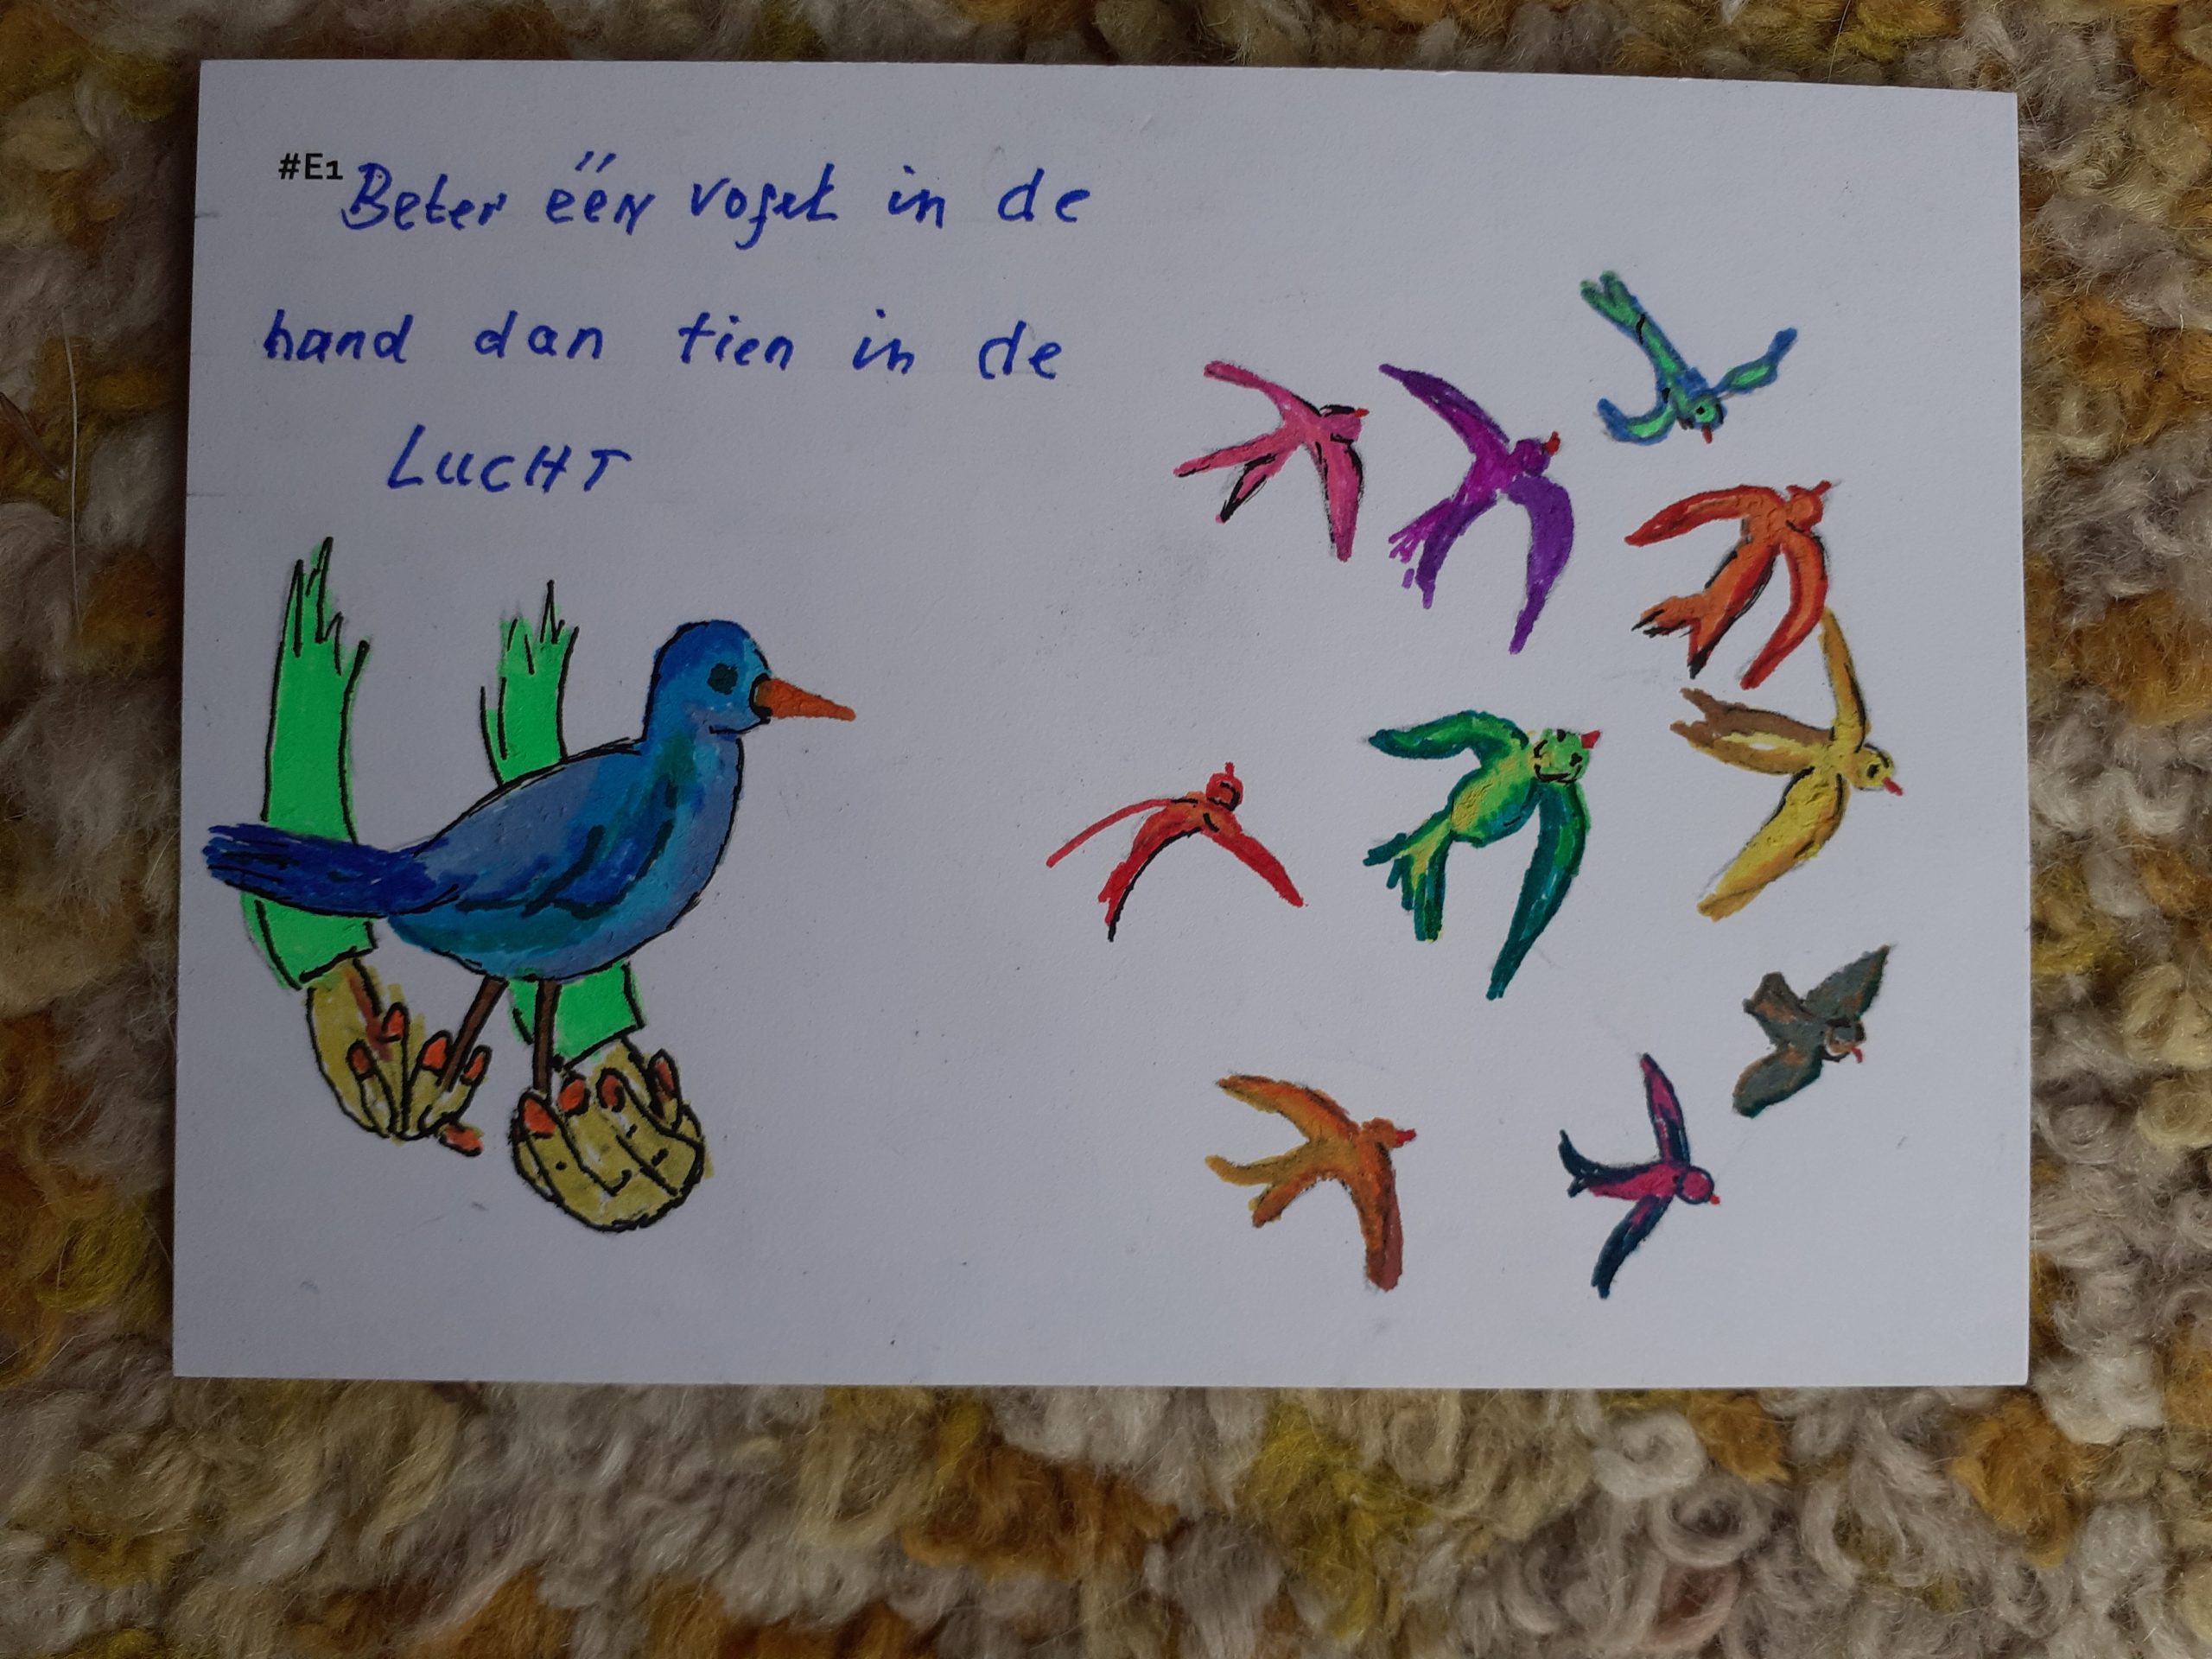 #E1
Beter één vogel in de
hand dan tien in de
LUCHT